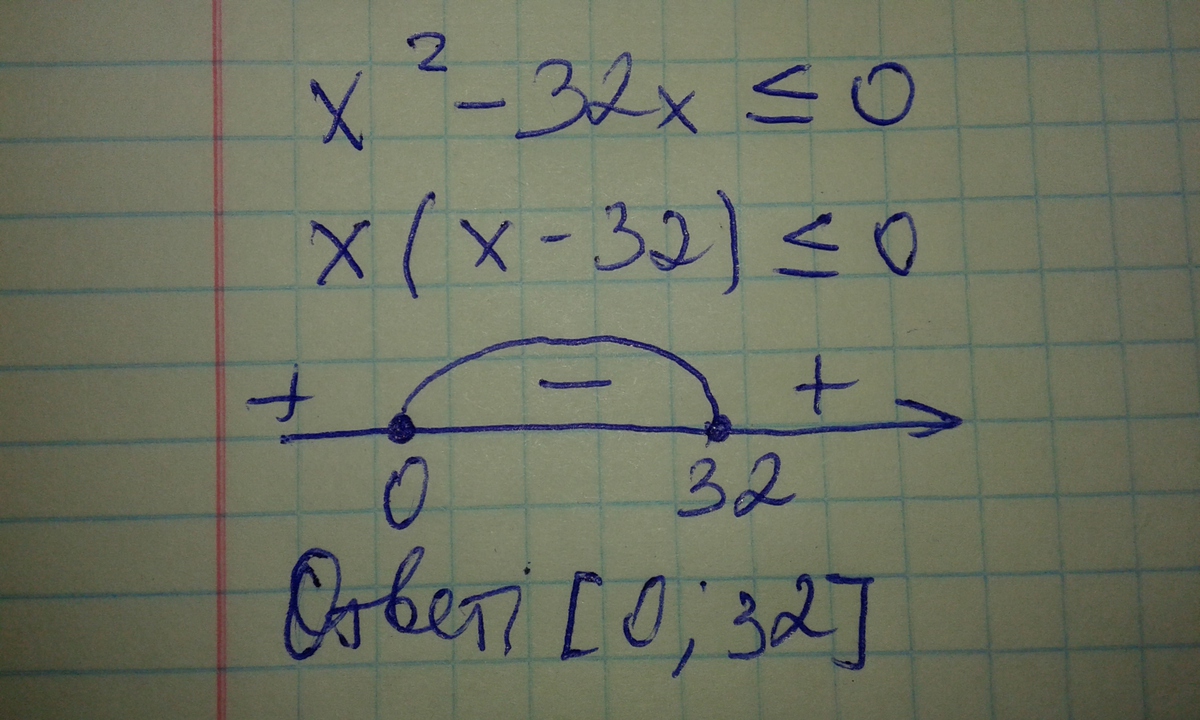 x² - 32x ≤ 0
x(x - 32) ≤ 0
+ − +
0 32
Ответ: [0; 32]